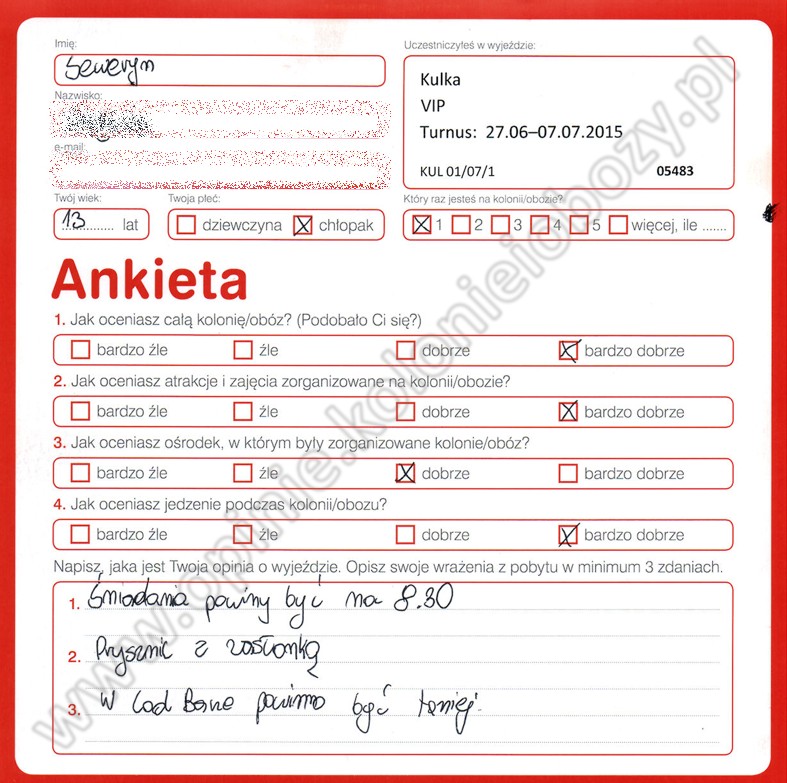 Imię:
Seweryn
Uczestniczyłeś w wyjeździe:
Kulka
VIP
Turnus: 27.06–07.07.2015
KUL 01/07/1 05483
Nazwisko:
e-mail:
Twój wiek:
13 lat
Twoja płeć:
dziewczyna X chłopak
Który raz jesteś na kolonii/obozie?
X 1 2 3 4 5 więcej, ile .......
Ankieta
1. Jak oceniasz całą kolonię/obóz? (Podobało Ci się?)
bardzo źle źle dobrze X bardzo dobrze
2. Jak oceniasz atrakcje i zajęcia zorganizowane na kolonii/obozie?
bardzo źle źle dobrze X bardzo dobrze
3. Jak oceniasz ośrodek, w którym były zorganizowane kolonie/obóz?
bardzo źle źle X dobrze bardzo dobrze
4. Jak oceniasz jedzenie podczas kolonii/obozu?
bardzo źle źle dobrze X bardzo dobrze
Napisz, jaka jest Twoja opinia o wyjeździe. Opisz swoje wrażenia z pobytu w minimum 3 zdaniach.
1. Śniadania powiny być na 8.30
2. Prysznic z zasłonką
3. W powinno być taniej.
www.opinie.kolonieiobozy.pl